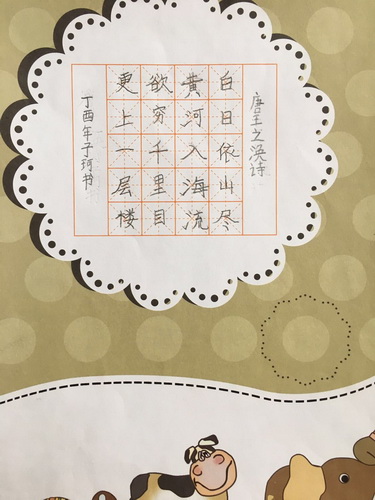 唐王之涣诗
白日依山尽
黄河入海流
欲穷千里目
更上一层楼
丁酉年子珂书